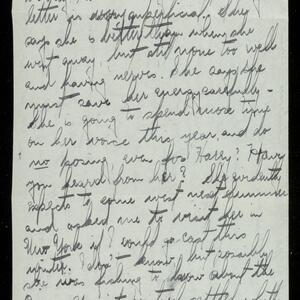 letter in
says she is better than when she
went away. but still none too well
and having nerves. She says she
must save her energy carefully -
she is going to spend more time
on her voice this year and do
no posing even for Harry? Have
you heard from her? She
expects to come west next summer
and asked me to visit her in
New York if I could go East this
winter. I don't know but possibly
she was fishing to know about the